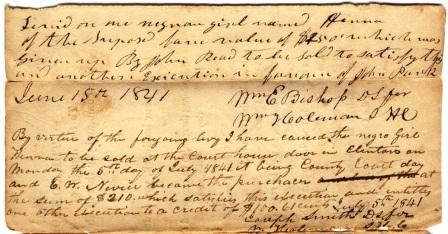 Levied on one negrou girl named Henna
of the Suposed fare value of which was
Given up By John Read to be sold to satisfy this
and another Execution in favour of John
June 15th 1841
Wm E Bishop D Sffr
Wm Hooleman S HC
By virtue of the forgoing levy I have caused the negro Girl
Henna to be sold at the Court house door in Clinton on
Monday the 5th day of July 1841 it being County Court day
and E. W. Nevier became the purchaser at
the sum of $210. which satisfies this execution and entitles
one other execution to a credit of $100.61 cents July 5th 1841
Joseph Smith D Sffr